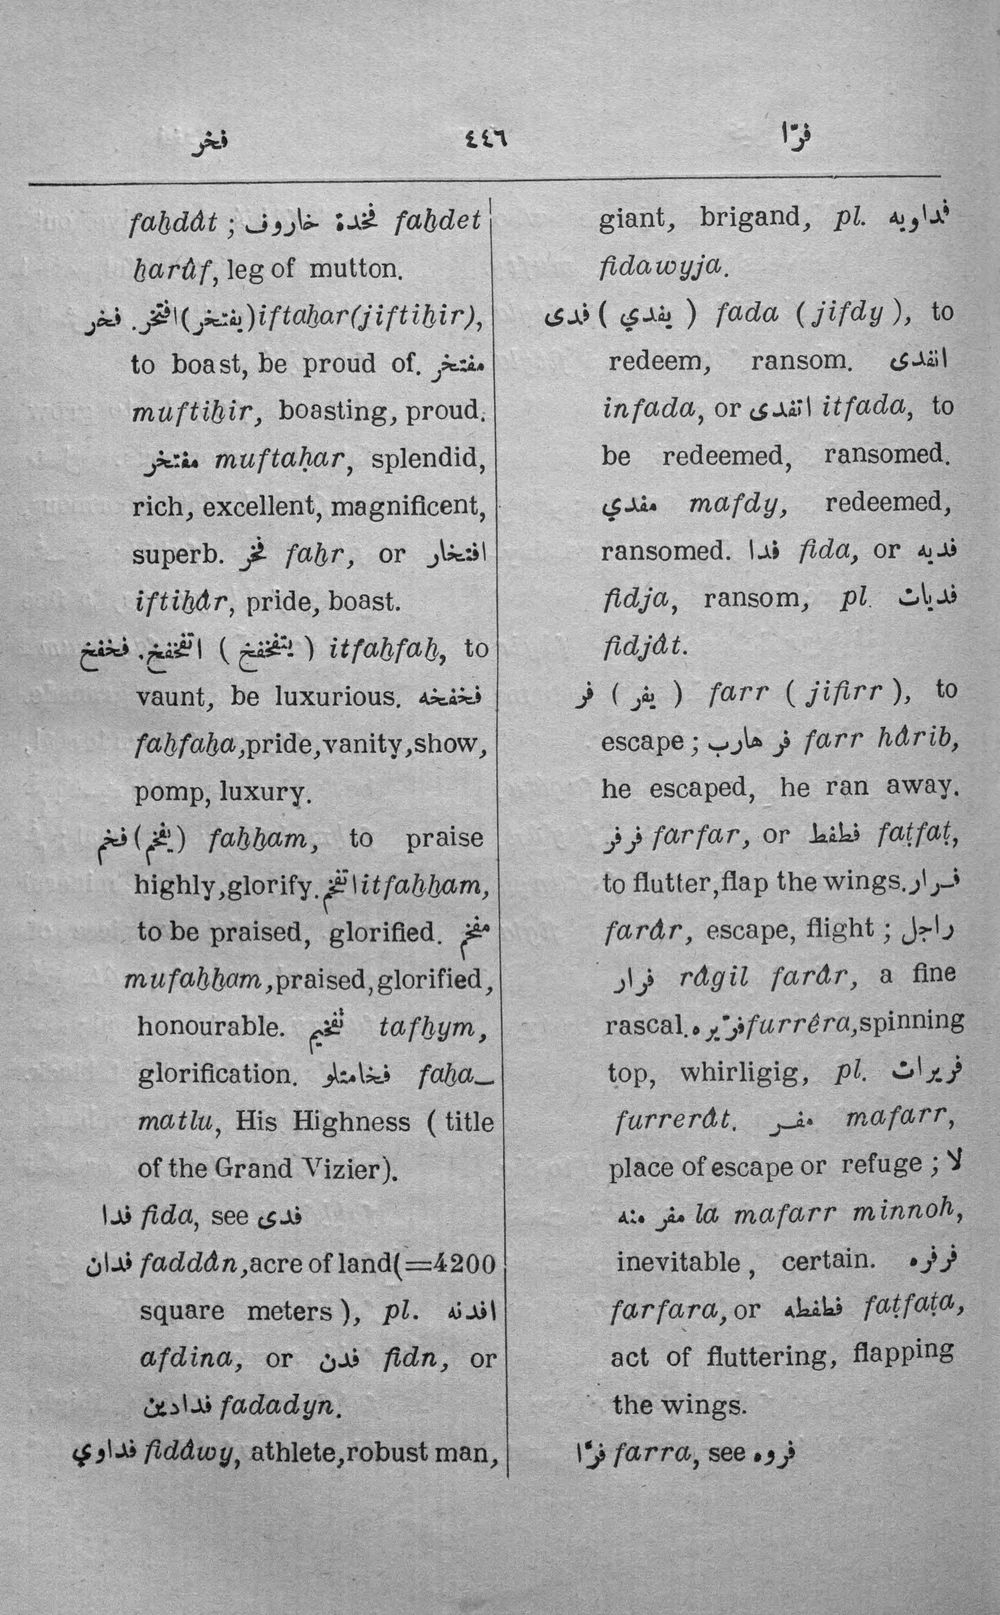 فخر ٤٤٦ فرّا
faḫdât ; فخدة خاروف faḫdet
ḫarûf, leg of mutton.
فخر. افتخر(يفتخر)iftaḫar(jiftiḫir),
to boast, be proud of. مفتخر
muftiḫir, boasting, proud.
مفتخر muftaḥar, splendid,
rich, excellent, magnificent,
superb. فخر faḫr, or افتخار
iftiḫâr, pride, boast.
فخفخ. اتفخفخ ( يتفخفخ ) itfaḫfaḫ, to
vaunt, be luxurious. فخفخه
faḫfaḫa,pride,vanity,show,
pomp, luxury.
فخم (يفخم) faḫḫam, to praise
highly,glorify.اتفخم itfaḫḫam,
to be praised, glorified. مفخم
mufaḫḫam,praised,glorified,
honourable. تفخيم tafḫym,
glorification. فخامتلو faḫa_
matlu, His Highness ( title
of the Grand Vizier).
فدا fida, see فدى
فدان faddân,acre of land(=4200
square meters ), pl. افدنه
afdina, or فدن fidn, or
فدادين fadadyn.
فداوي fidâwy, athlete,robust man,
giant, brigand, pl. فداويه
fidawyja.
فدى ( يفدي ) fada ( jifdy ), to
redeem, ransom. انفدى
infada, or اتفدى itfada, to
be redeemed, ransomed.
مفدي mafdy, redeemed,
ransomed. فدا fida, or فديه
fidja, ransom, pl. فديات
fidjât.
فر ( يفر ) farr ( jifirr ), to
escape ; فر هارب farr hârib,
he escaped, he ran away.
فرفر farfar, or فطفط faṭfaṭ,
to flutter,flap the wings.فـرار
farâr, escape, flight ; راجل
فرار râgil farâr, a fine
rascal.فرّيره furrêra,spinning
top, whirligig, pl. فريرات
furrerât. مفـر mafarr,
place of escape or refuge ; لا
مفر منه la mafarr minnoh,
inevitable , certain. فرفره
farfara, or فطفطه faṭfaṭa,
act of fluttering, flapping
the wings.
فرّا farra, see فروه